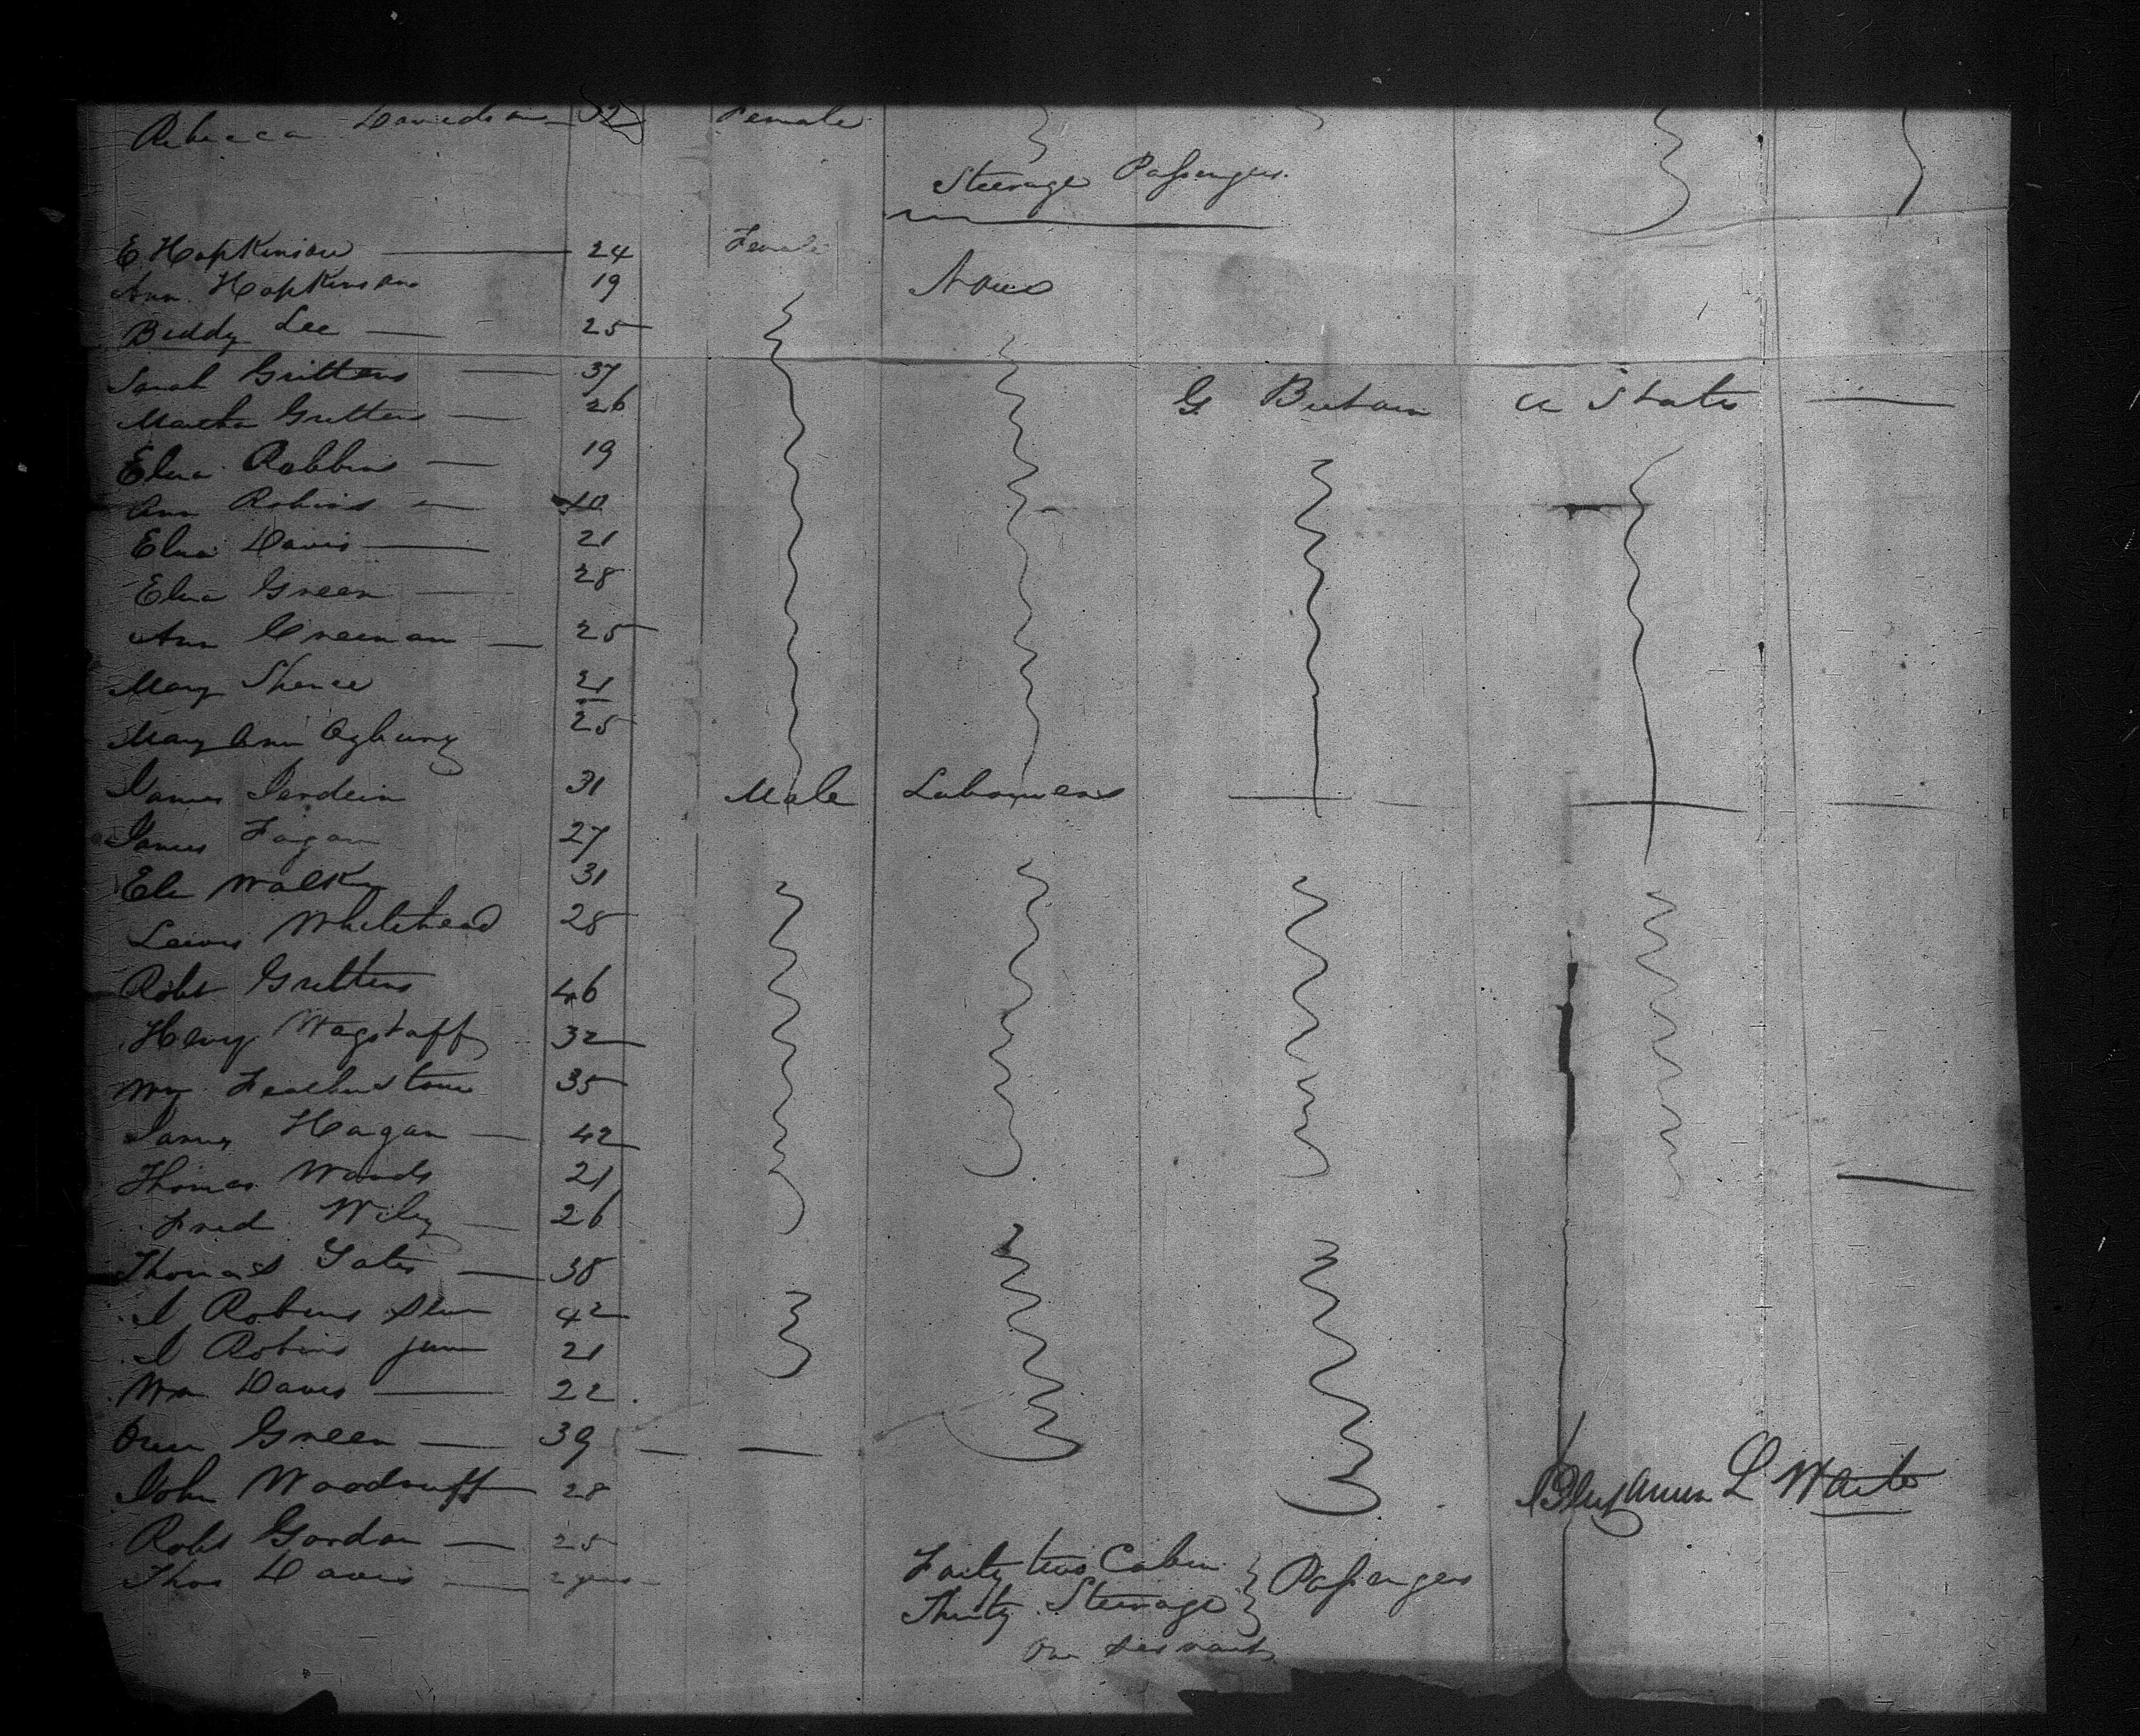 Rebecca Davidson 32 Female
Steerage Passengers
E Hopkinson 24 Female
Ann Hopkinson 19 None
Biddy Lee 25
Sarah Grittens 37
Martha Grittens 26 G Britain U States
Eliza Robbins 19
Ann Robins 10
Eliza Davis 21
Eliza Green 28
Ann Creeman 25
Mary 21
Mary Ann 25
James Jardein 31 Male Labourers
James Fagan 27
Eli Walker 31
Lewis Whitehead 28
Robt Grittens 46
Henry Wagstaff 32
Wm Featherstone 35
James Hagan 42
Thomas Woods 21
Fred Wiley 26
Thomas Yates 38
J Robins Sen 42
J Robins jun 21
Wm Davis 22
Owen Green 39
John Woodruff 28
Benjamin L Waite
Robt Gordon 25
Thos Davis 2 years
Forty two Cabin } Passengers
Thirty Steerage }
One Servant